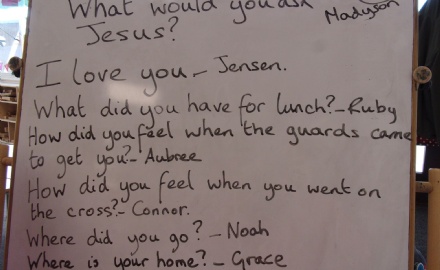 What would you ask
Madyson
Jesus?
I love you - Jensen.
What did you have for lunch? - Ruby
How did you feel when the guards came
to get you? - Aubree
How did you feel when you went on
the cross? - Connor.
Where did you go? - Noah
Where is your home? - Grace